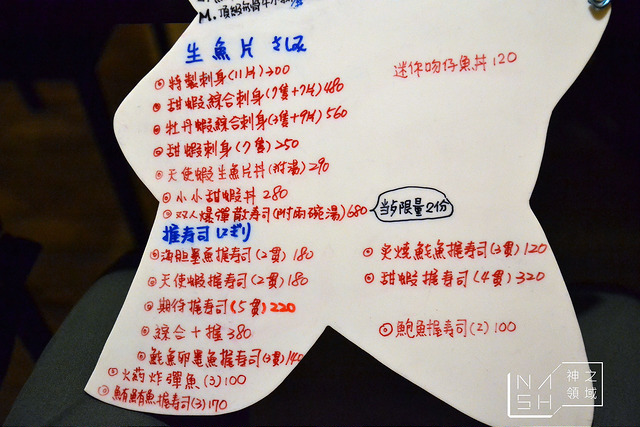 M. 頂級
生魚片 さしみ
◎特製刺身(11片)300
◎甜蝦綜合刺身(7隻+7片)480
◎牡丹蝦綜合刺身(3隻+9片)560
◎甜蝦刺身(7隻)250
◎天使蝦生魚片丼(附湯)290
◎小小甜蝦丼 280
◎双人爆彈散寿司(附兩碗湯)680
当日限量2份
迷你吻仔魚丼120
握寿司 にぎり
◎海胆墨魚握寿司(2貫)180
◎天使蝦握寿司(2貫)180
◎期待握寿司(5貫)220
◎綜合十握380
◎魠魚卵墨魚握寿司(3貫)140
◎火葯炸彈魚(3)100
◎鮪魚握寿司(3)170
◎炙燒魠魚握寿司(3貫)120
◎甜蝦握寿司(4貫)320
◎鮑魚握寿司(2)100
NASH
神之
領域